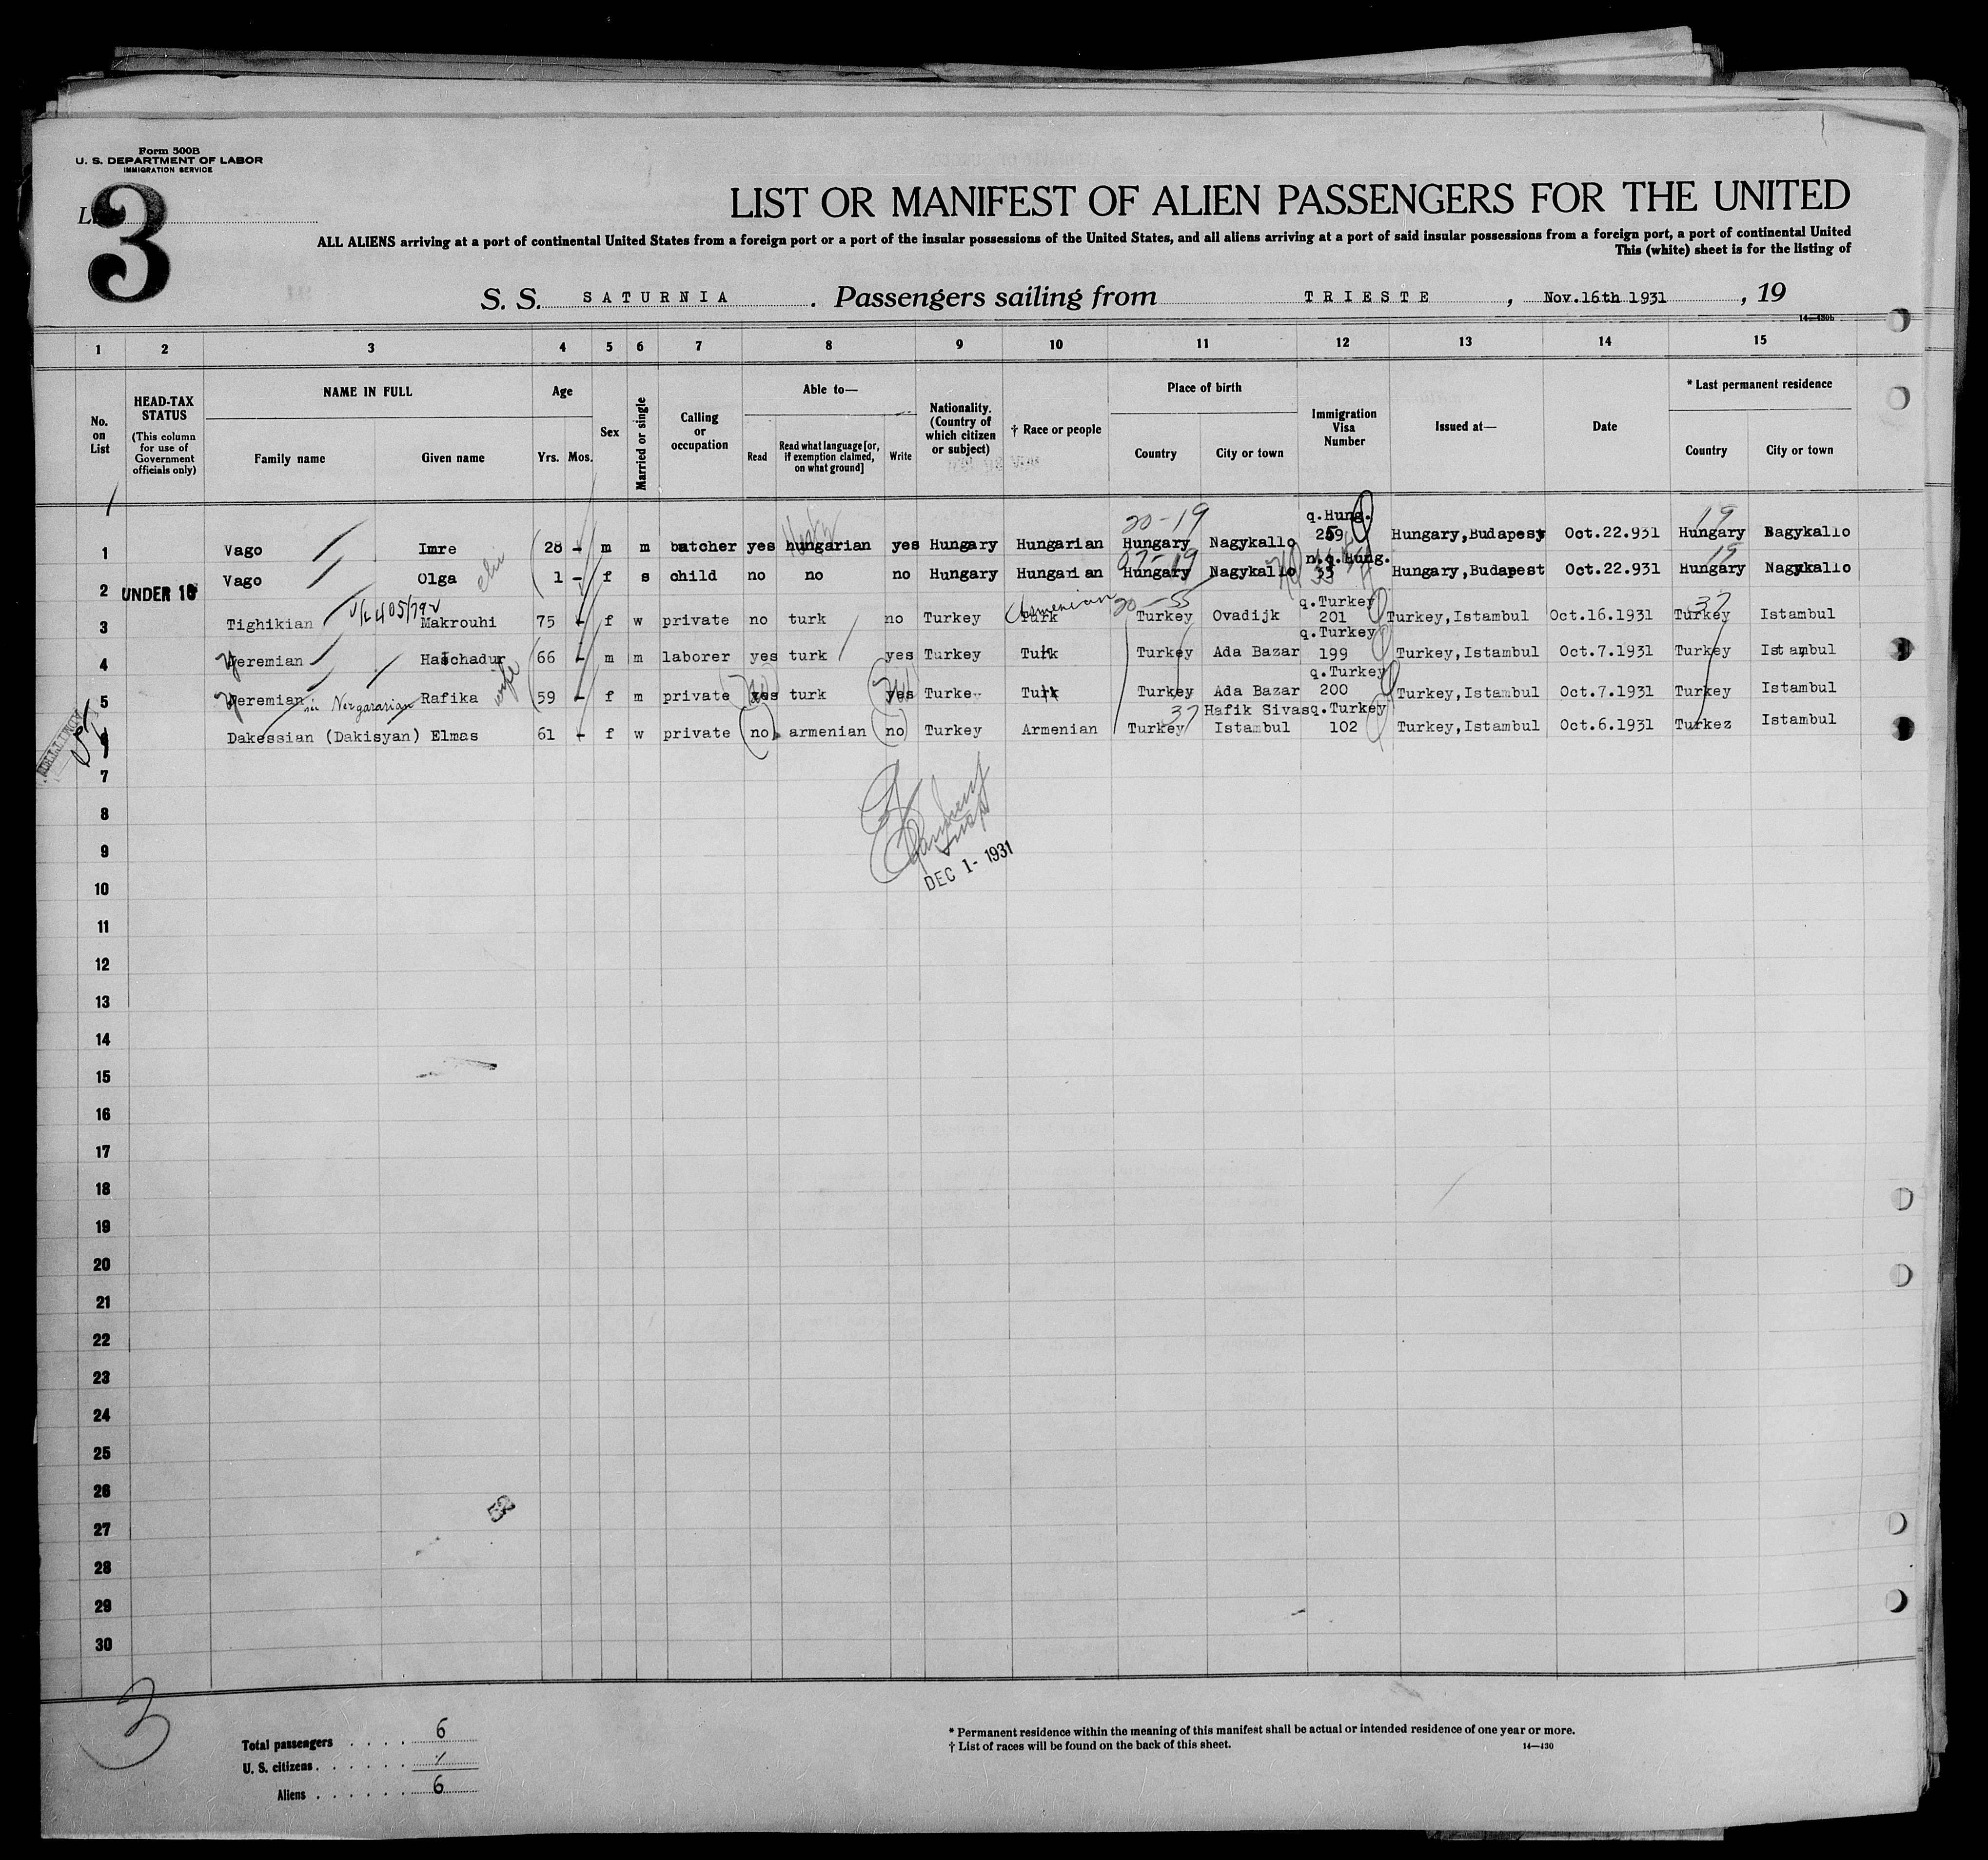 Form 500B
U. S. DEPARTMENT OF LABOR
IMMIGRATION SERVICE
3
LIST OR MANIFEST OF ALIEN PASSENGERS FOR THE UNITED
ALL ALIENS arriving at a port of continental United States from a foreign port or a port of the insular possessions of the United States, and all aliens arriving at a port of said insular possessions from a foreign port, a port of continental United
This (white) sheet is for the listing of
S. S. SATURNIA . Passengers sailing from TRIESTE , Nov.16th 1931 , 19
14—430b
1 2 3 4 5 6 7 8 9 10 11 12 13 14 15
No. on List
HEAD-TAX STATUS
(This column for use of Government officials only)
NAME IN FULL
Family name Given name
Age
Yrs. Mos.
Sex
Married or single
Calling or occupation
Able to—
Read
Read what language [or, if exemption claimed, on what ground]
Write
Nationality. (Country of which citizen or subject)
† Race or people
Place of birth
Country City or town
Immigration Visa Number
Issued at—
Date
* Last permanent residence
Country City or town
20-19 q.Hung. 19
1 Vago Imre 28 - m m butcher yes hungarian yes Hungary Hungarian Hungary Nagykallo 259 Hungary,Budapest Oct.22.931 Hungary Nagykallo
n.q.Hung. 19
2 UNDER 16 Vago Olga 1 - f s child no no no Hungary Hungarian Hungary Nagykallo 33 Hungary,Budapest Oct.22.931 Hungary Nagykallo
Armenian 20-55 q.Turkey 37
3 Tighikian Makrouhi 75 - f w private no turk no Turkey Turk Turkey Ovadijk 201 Turkey,Istambul Oct.16.1931 Turkey Istambul
q.Turkey
4 Yeremian Haschadur 66 - m m laborer yes turk yes Turkey Turk Turkey Ada Bazar 199 Turkey,Istambul Oct.7.1931 Turkey Istambul
wife q.Turkey
5 Yeremian Rafika 59 - f m private yes turk yes Turkey Turk Turkey Ada Bazar 200 Turkey,Istambul Oct.7.1931 Turkey Istambul
37 Hafik Sivas q.Turkey
6 Dakessian (Dakisyan) Elmas 61 - f w private no armenian no Turkey Armenian Turkey Istambul 102 Turkey,Istambul Oct.6.1931 Turkez Istambul
7
8
DEC 1- 1931
9
10
11
12
13
14
15
16
17
18
19
20
21
22
23
24
25
26
53
27
28
29
30
3
Total passengers . . . . 6
U. S. citizens . . . . . . /
Aliens . . . . . . 6
* Permanent residence within the meaning of this manifest shall be actual or intended residence of one year or more.
† List of races will be found on the back of this sheet.
14—430